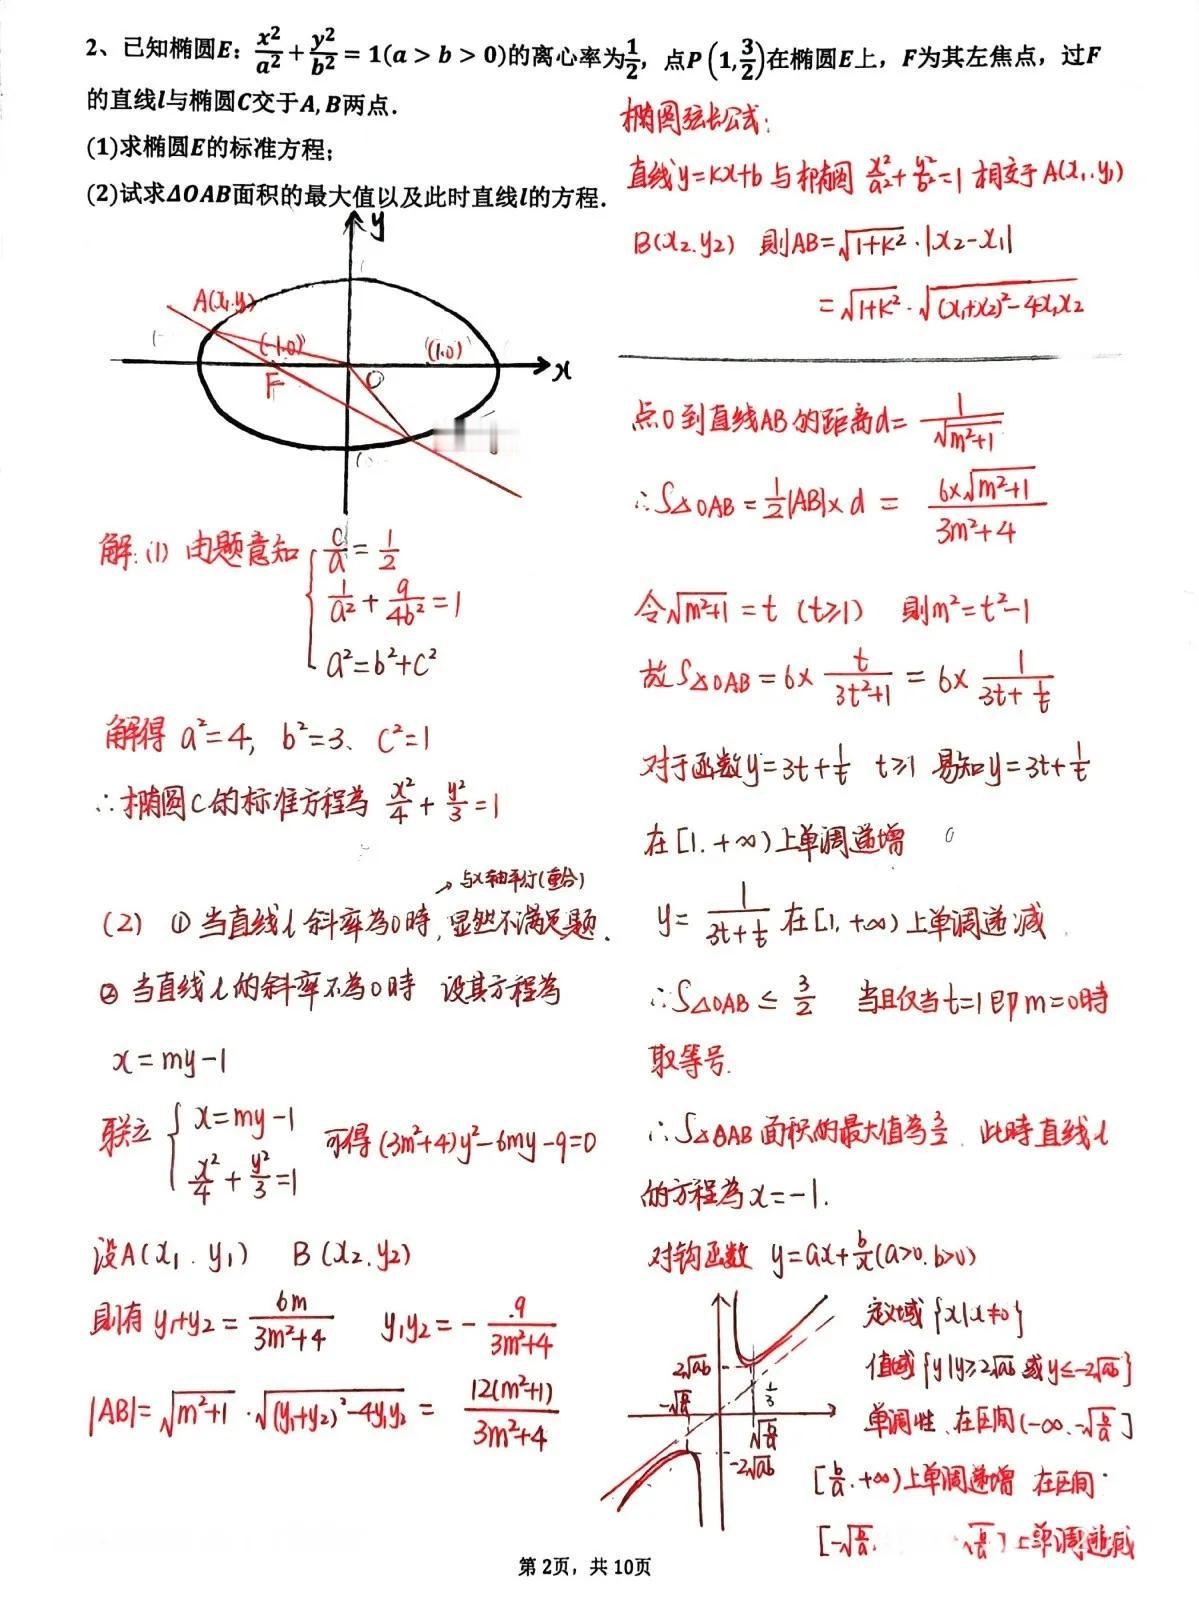 2、已知椭圆E：x²/a² + y²/b² = 1(a > b > 0)的离心率为1/2，点P (1, 3/2)在椭圆E上，F为其左焦点，过F
的直线l与椭圆C交于A, B两点.
(1)求椭圆E的标准方程；
(2)试求ΔOAB面积的最大值以及此时直线l的方程.
y
A(x₁.y)
(-1.0)
(1.0)
F
O
x
解:(1) 由题意知 { c/a = 1/2
1/a² + 9/4b² = 1
a²=b²+c²
解得 a²=4, b²=3、 c²=1
∴椭圆C的标准方程為 x²/4 + y²/3 =1
→ 与x轴平行(重合)
(2) ① 当直线l斜率為0時,显然不满足题.
② 当直线l的斜率不為0時 设其方程為
x = my-1
联立 { x=my-1
x²/4 + y²/3 =1
可得 (3m²+4)y²-6my-9=0
设A(x₁. y₁) B(x₂.y₂)
則有 y₁+y₂ = 6m/3m²+4 y₁y₂ = - 9/3m²+4
|AB|= √m²+1 · √(y₁+y₂)²-4y₁y₂ = 12(m²+1)/3m²+4
椭圆弦长公式:
直线y=kx+b 与椭圆 x²/a² + y²/b² =1 相交于A(x₁.y₁)
B(x₂.y₂) 則AB=√1+k² ·|x₂-x₁|
= √1+k² · √(x₁+x₂)²-4x₁x₂
点O到直线AB的距离d= 1/√m²+1
∴S△OAB = 1/2|AB|×d = 6×√m²+1/3m²+4
令√m²+1 = t (t≥1) 則m²=t²-1
故S△OAB = 6× t/3t²+1 = 6× 1/3t+1/t
对于函数y=3t+1/t t≥1 易知y=3t+1/t
在[1. +∞)上单调递增
y= 1/3t+1/t 在[1, +∞)上单调递减
∴S△OAB ≤ 3/2 当且仅当t=1即m=0時
取等号.
∴S△OAB面积的最大值為3/2. 此時直线l
的方程為x=-1.
对钩函数 y=ax+b/x(a>0.b>0)
2√ab
-√b/a
√b/a
-2√ab
定义域 {x|x≠0}
值域 {y|y≥2√ab 或y≤-2√ab}
单调性、在区间(-∞、-√b/a]
[b/a.+∞)上单调递增 在区间
[-√b/a. √b/a)上单调递减
第 2页，共 10页